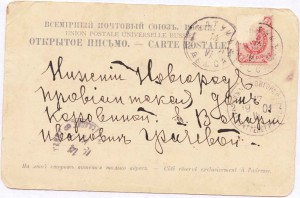 ВСЕМІРНЫЙ ПОЧТОВЫЙ СОЮЗЪ. РОССІЯ
UNION POSTALE UNIVERSELLE RUSSIE
ОТКРЫТОЕ ПИСЬМО. — CARTE POSTALE
Нижній Новгородъ
Провіантская домъ
Каровиной. Е В Марiи
Ивановнѣ Грачевой
На этой сторонѣ пишется только адресъ. — Côté réservé exclusivement à l'adresse.